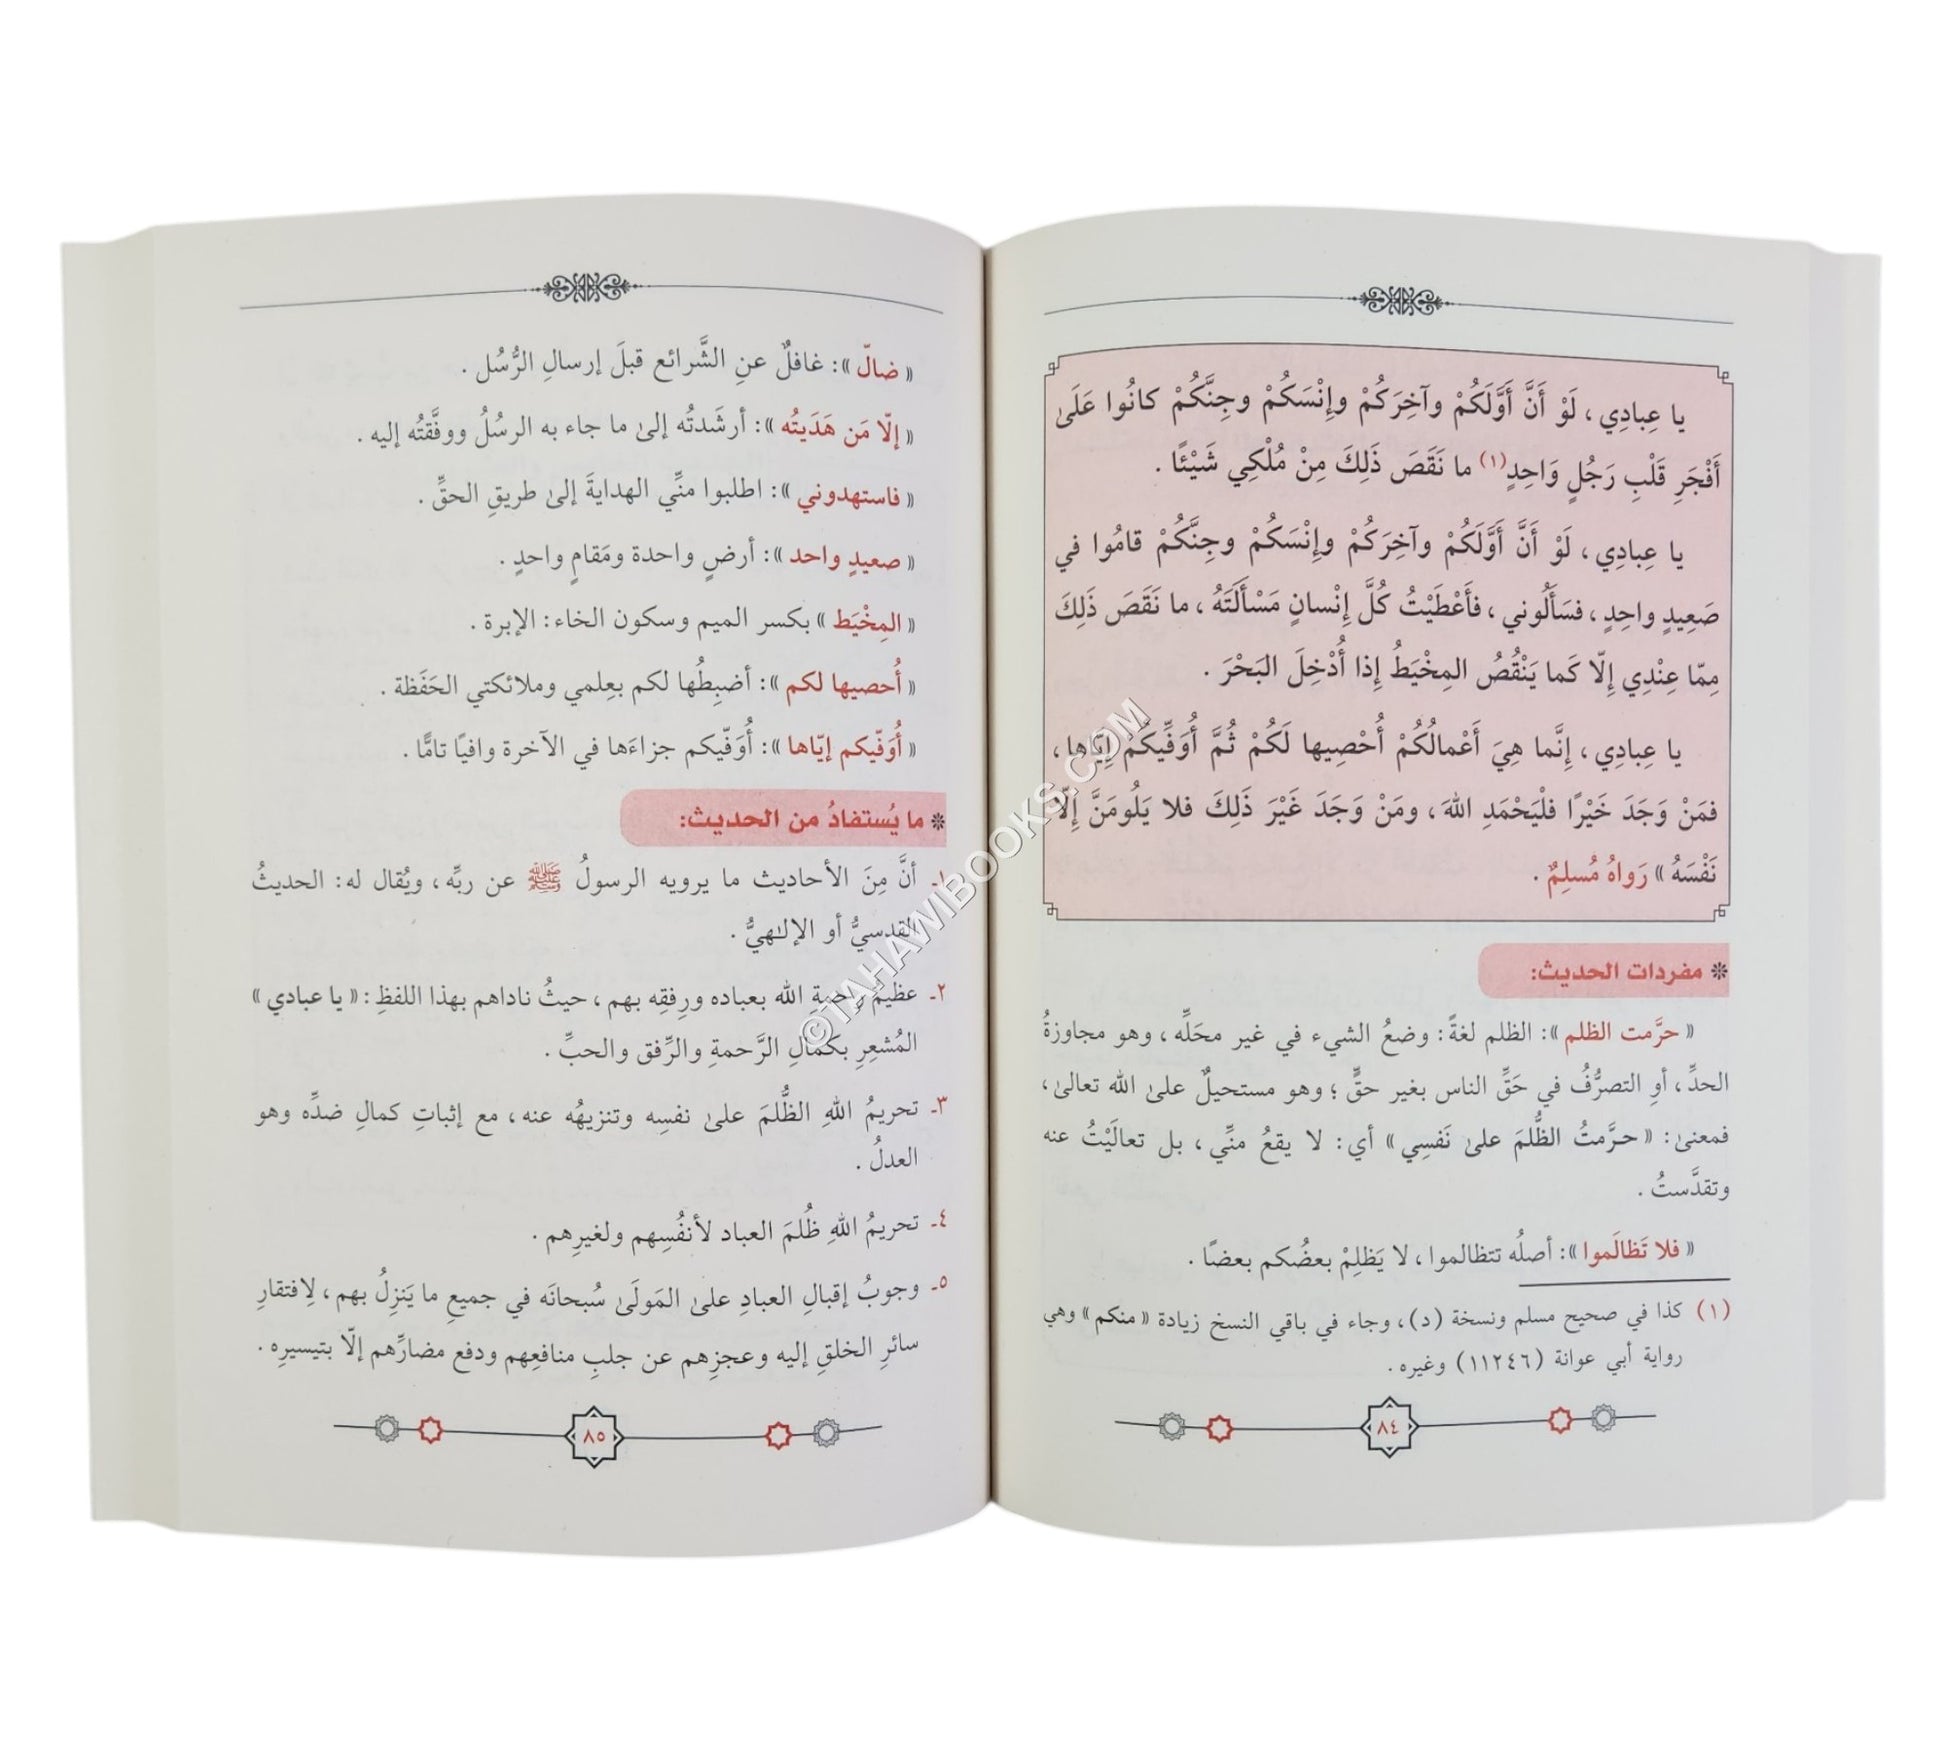 يا عِبادِي ، لَوْ أَنَّ أَوَّلَكُمْ وآخِرَكُمْ وإِنْسَكُمْ وجِنَّكُمْ كانُوا عَلَىٰ
أَفْجَرِ قَلْبِ رَجُلٍ وَاحِدٍ(١) ما نَقَصَ ذَلِكَ مِنْ مُلْكِي شَيْئًا .
يا عِبادِي ، لَوْ أَنَّ أَوَّلَكُمْ وآخِرَكُمْ وإِنْسَكُمْ وجِنَّكُمْ قامُوا في
صَعِيدٍ واحِدٍ ، فسَأَلُوني ، فأَعْطَيْتُ كُلَّ إِنْسانٍ مَسْأَلَتَهُ ، ما نَقَصَ ذَلِكَ
مِمّا عِنْدِي إِلّا كَما يَنْقُصُ المِخْيَطُ إِذا أُدْخِلَ البَحْرَ .
يا عِبادِي ، إِنَّما هِيَ أَعْمالُكُمْ أُحْصِيها لَكُمْ ثُمَّ أُوَفِّيكُمْ إِيّاها ،
فمَنْ وَجَدَ خَيْرًا فلْيَحْمَدِ اللهَ ، ومَنْ وَجَدَ غَيْرَ ذَلِكَ فلا يَلُومَنَّ إِلّا
نَفْسَهُ » رَواهُ مُسلِمٌ .
❊ مفردات الحديث:
« حرَّمت الظلم »: الظلم لغةً: وضعُ الشيء في غير محَلِّه ، وهو مجاوزةُ
الحدِّ ، أوِ التصرُّفُ في حَقِّ الناس بغير حقٍّ ؛ وهو مستحيلٌ علىٰ الله تعالىٰ ،
فمعنىٰ: « حرَّمتُ الظُّلمَ علىٰ نَفسِي » أي: لا يقعُ منِّي ، بل تعالَيْتُ عنه
وتقدَّستُ .
« فلا تَظالَموا »: أصلُه تتظالموا ، لا يَظلِمْ بعضُكم بعضًا .
(١) كذا في صحيح مسلم ونسخة (د)، وجاء في باقي النسخ زيادة « منكم » وهي
رواية أبي عوانة (١١٢٤٦) وغيره .
٨٤
« ضالّ »: غافلٌ عنِ الشَّرائع قبلَ إرسالِ الرُّسُل .
« إلّا مَن هَدَيتُه »: أرشَدتُه إلىٰ ما جاء به الرسُلُ ووفَّقتُه إليه .
« فاستهدوني »: اطلبوا منِّي الهدايةَ إلىٰ طريقِ الحقِّ .
« صعيدٍ واحد »: أرضٍ واحدة ومَقامٍ واحدٍ .
« المِخْيَط » بكسر الميم وسكون الخاء: الإبرة .
« أُحصيها لكم »: أضبِطُها لكم بعِلمي وملائكتي الحَفَظة .
« أُوَفّيكم إيّاها »: أُوَفّيكم جزاءَها في الآخرة وافيًا تامًّا .
❊ ما يُستفادُ من الحديث:
١ـ أنَّ مِنَ الأحاديث ما يرويه الرسولُ ﷺ عن ربِّه ، ويُقال له: الحديثُ
القدسيُّ أو الإلـٰهيُّ .
٢ـ عظيمُ رحمةِ الله بعباده ورِفقِه بهم ، حيثُ ناداهم بهذا اللفظِ: « يا عبادي »
المُشعِرِ بكمالِ الرَّحمةِ والرِّفق والحبِّ .
٣ـ تحريمُ اللهِ الظُّلمَ علىٰ نفسِه وتنزيهُه عنه ، مع إثباتِ كمالِ ضدِّه وهو
العدلُ .
٤ـ تحريمُ اللهِ ظُلمَ العباد لأنفُسِهم ولغيرِهم .
٥ـ وجوبُ إقبالِ العبادِ علىٰ المَولَىٰ سُبحانَه في جميعِ ما يَنزِلُ بهم ، لِافتقارِ
سائرِ الخلقِ إليه وعجزِهم عن جلبِ منافعِهم ودفع مضارِّهم إلّا بتيسيرِه .
٨٥
©TAHAWIBOOKS.COM